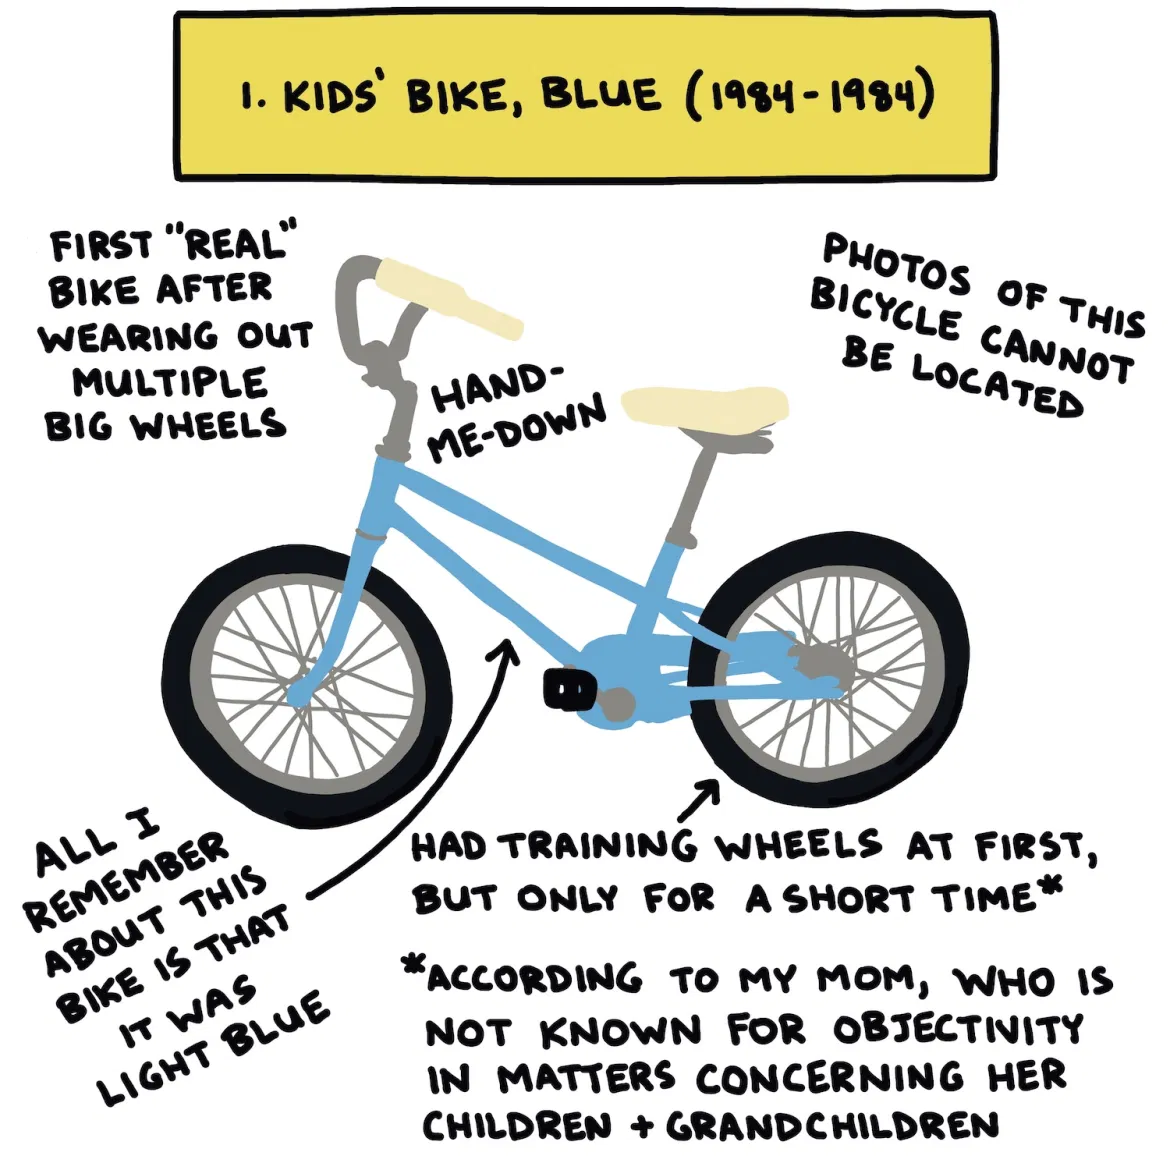 1. KIDS' BIKE, BLUE (1984-1984)
FIRST "REAL"
BIKE AFTER
WEARING OUT
MULTIPLE
BIG WHEELS
HAND-
ME-DOWN
PHOTOS OF THIS
BICYCLE CANNOT
BE LOCATED
ALL I
REMEMBER
ABOUT THIS
BIKE IS THAT
IT WAS
LIGHT BLUE
HAD TRAINING WHEELS AT FIRST,
BUT ONLY FOR A SHORT TIME*
*ACCORDING TO MY MOM, WHO IS
NOT KNOWN FOR OBJECTIVITY
IN MATTERS CONCERNING HER
CHILDREN + GRANDCHILDREN